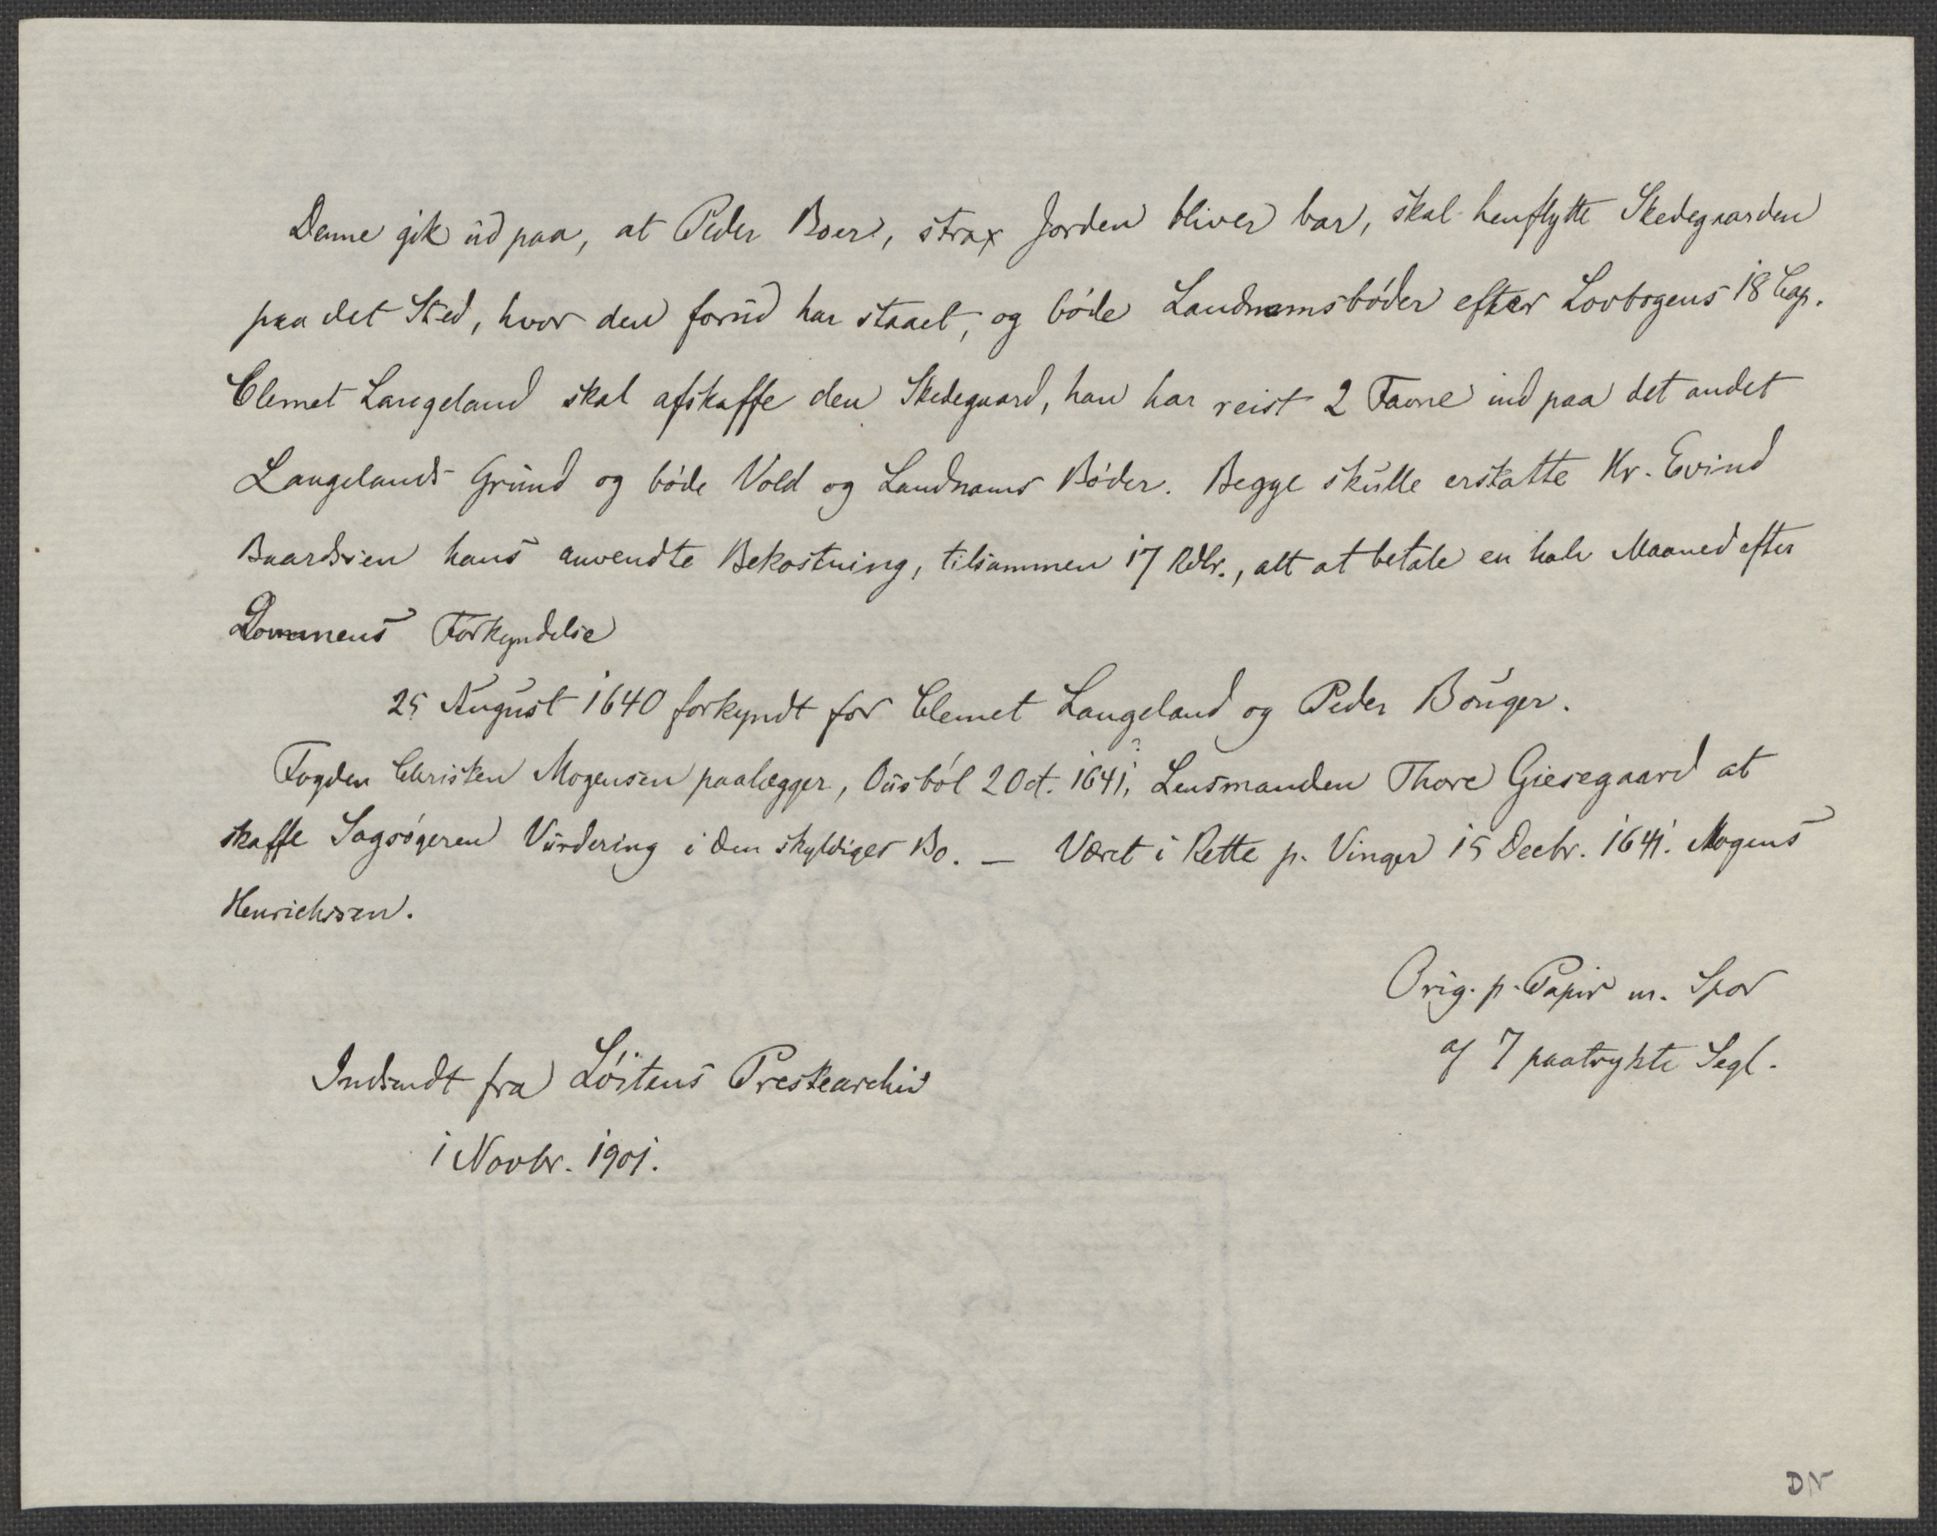 Denne gik ud paa, at Peder Boer, strax Jorden bliver bar, skal henflytte Skedegaarden
paa det Sted, hvor den forud har staaet, og bóde Landnamsbóder efter Lovbogens 18 Cap.
Clemet Langeland skal afskaffe den Skedegaard, han har reist 2 Favne ind paa det andet
Langelands Grund og bóde Vold og Landnams Bóder. Begge skulle erstatte Hr. Evind
Baardssen hans anvendte Bekostning, tilsammen 17 Rdlr., alt at betale en halv Maaned efter
Dommens Forkyndelse
25 August 1640 forkyndt for Clemet Langeland og Peder Bónger.
Fogden Christen Mogensen paalægger, Ousból 2 Oct. 1641, Lensmanden Thore Giesegaard at
skaffe Sagsógeren Vurdering i den skyldiges Bo. — Været i Rette p. Vinger 15 Decbr. 1641. Mogens
Henrichsen.
Orig. p. Papir m. Spor
af 7 paatrykte Segl.
Indsendt fra Lóitens Prestearchiv
i Novbr. 1901.
DN